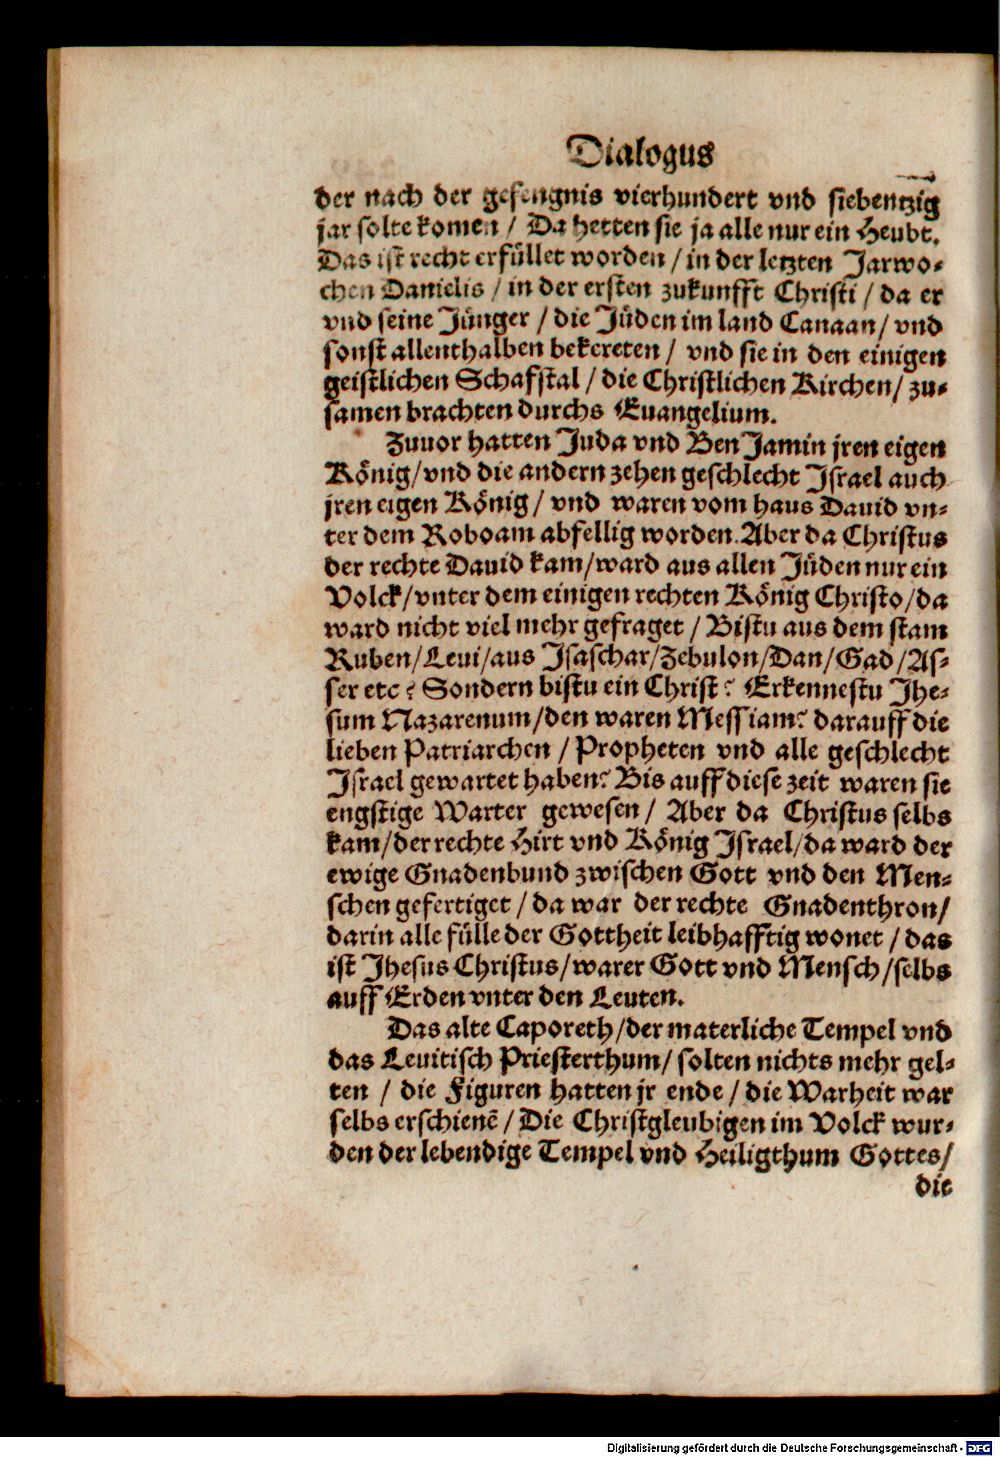 Dialogus
der nach der gefengnis vierhundert vnd siebentzig
jar solte komen / Da hetten sie ja alle nur ein Heubt.
Das ist recht erfüllet worden / in der letzten Jarwo-
chen Danielis / in der ersten zukunfft Christi / da er
vnd seine Jünger / die Jüden im land Canaan / vnd
sonst allenthalben bekereten / vnd sie in den einigen
geistlichen Schafstal / die Christlichen Kirchen / zu-
samen brachten durchs Euangelium.
Zuuor hatten Juda vnd BenJamin jren eigen
König / vnd die andern zehen geschlecht Israel auch
jren eigen König / vnd waren vom haus Dauid vn-
ter dem Roboam abfellig worden. Aber da Christus
der rechte Dauid kam / ward aus allen Jüden nur ein
Volck / vnter dem einigen rechten König Christo / da
ward nicht viel mehr gefraget / Bistu aus dem stam
Ruben / Leui / aus Isaschar / Zebulon / Dan / Gad / As-
ser etc? Sondern bistu ein Christ? Erkennestu Jhe-
sum Nazarenum / den waren Messiam? darauff die
lieben Patriarchen / Propheten vnd alle geschlecht
Israel gewartet haben? Bis auff diese zeit waren sie
engstige Warter gewesen / Aber da Christus selbs
kam / der rechte Hirt vnd König Israel / da ward der
ewige Gnadenbund zwischen Gott vnd den Men-
schen gefertiget / da war der rechte Gnadenthron /
darin alle fülle der Gottheit leibhafftig wonet / das
ist Jhesus Christus / warer Gott vnd Mensch / selbs
auff Erden vnter den Leuten.
Das alte Caporeth / der materliche Tempel vnd
das Leuitisch Priesterthum / solten nichts mehr gel-
ten / die Figuren hatten jr ende / die Warheit war
selbs erschienẽ / Die Christgleubigen im Volck wur-
den der lebendige Tempel vnd Heiligthum Gottes /
die
Digitalisierung gefördert durch die Deutsche Forschungsgemeinschaft - DFG